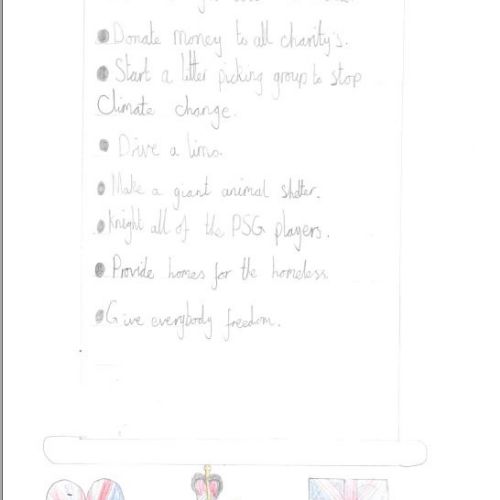 ● Donate money to all charity's.
● Start a litter picking group to stop
Climate change.
● Drive a limo.
● Make a giant animal shelter.
● Knight all of the PSG players.
● Provide homes for the homeless.
● Give everybody freedom.